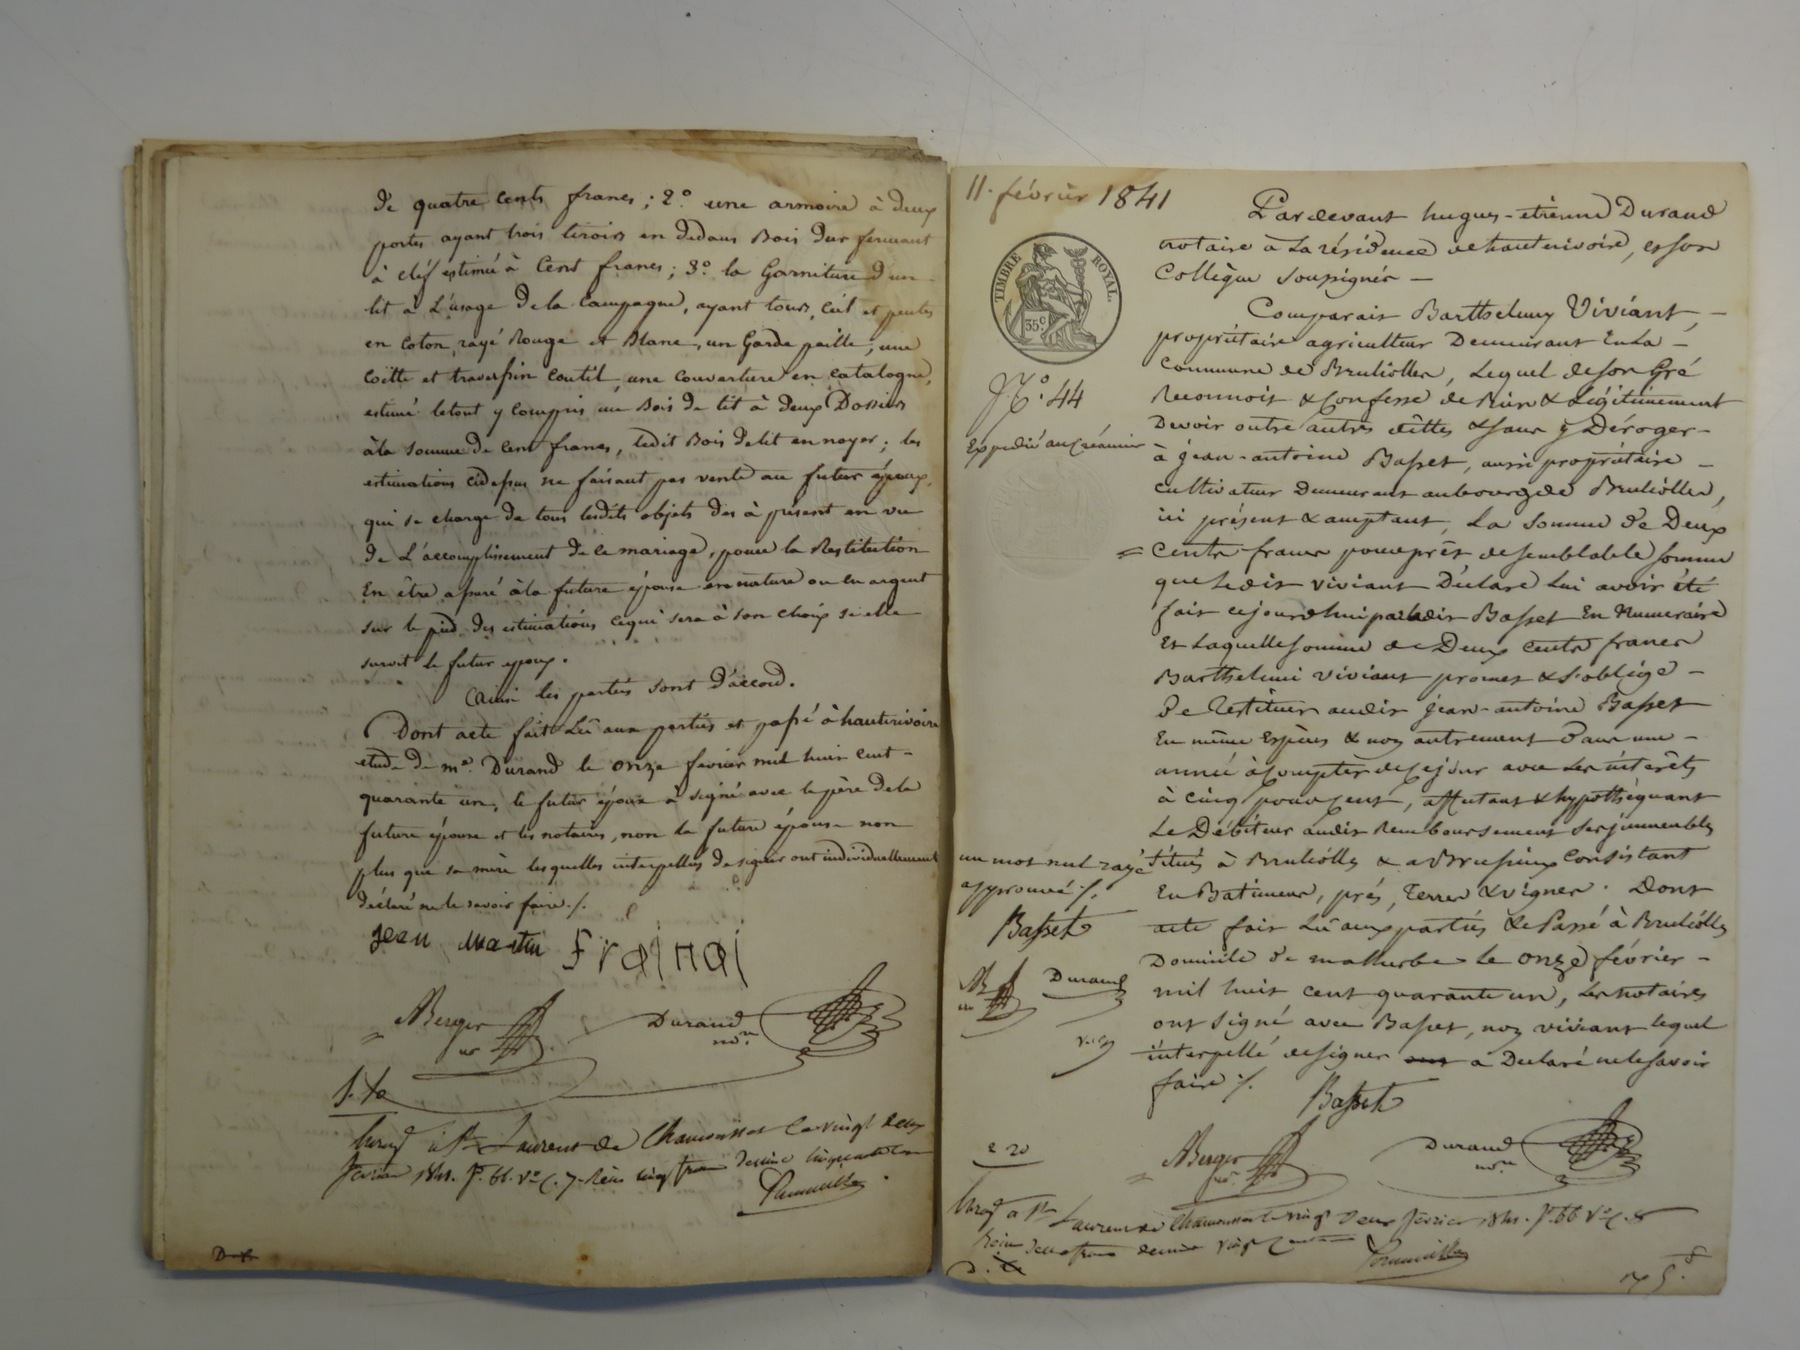 de quatre cents francs ; 2.° une armoire à deux
portes ayant trois tiroirs en dedans Bois dur fermant
à clef estimée à Cent francs ; 3.° la Garniture d'un
lit à L'usage de la Campagne, ayant tours, Ciel et pentes
en coton rayé Rouge et Blanc, un Garde paille, une
Coitte et traversin Coutil, une couverture en catalogne,
estimé le tout y compris un Bois de lit à deux Dossiers
à la somme de Cent francs, ledit Bois de lit en noyer ; les
estimations cidessus ne faisant pas vente au futur époux,
qui se charge de tous lesdits objets dès à présent en vue
de L'accomplissement de ce mariage, pour la Restitution
En être assuré à la future épouse en nature ou en argent
sur le pied des estimations ce qui sera à son choix si elle
survit le futur epoux.
Ainsi les parties sont D'accord.
Dont acte fait Lû aux parties et passé à hauterivoire
etude de me. Durand le onze février mil huit cent -
quarante un, le futur époux a signé avec le père de la
future épouse et les notaires, non la future épouse non
plus que sa mère lesquelles interpellées de signer ont individuellement
déclaré ne le savoir faire ./.
jean martin Frainai
ABerger
nre
Durand
nore
Enregé à St Laurent de Chamousset le vingt deux
février 1841. fo. 66. vo c. 7. Reçu cinq francs décime cinquante cmes
11. février 1841
TIMBRE ROYAL.
35c
N.° 44
Expédié au Créancier
Pardevant hugues-étienne Durand
notaire à La résidence de hauterivoire, et son
Collègue Soussignés -
Comparait Barthelemy Viviant, -
propriétaire agriculteur Demeurant En La -
Commune de Bruliolles, Lequel de son Gré
Reconnoit & Confesse de Bien & Légitimement
Devoir outre autres dettes & sans y Déroger -
à Jean-antoine Basset, aussi propriétaire -
cultivateur Demeurant au bourg de Brulliolles,
ici présent & acceptant, La somme de Deux
= Cents francs pour prêt de semblable somme
que Ledit viviant Déclare Lui avoir été
fait cejourdhui par Ledit Basset En Numeraire
Et Laquelle somme de Deux cents francs
Barthelemi viviant promet & s'oblige -
De Restituer audit Jean-antoine Basset
En même Espèces & non autrement Dans une -
année à Compter de Ce jour avec Les intérêts
à cinq pour Cent, affectant & hypothéquant
Le Débiteur audit Remboursement Ses immeubles
Situés à Brulliolles & a Brussieux Consistant
En Batiment, prés, Terres & vignes. Dont
acte fait Lû aux parties & Passé à Brulliolles
Domicile de malherbe Le onze février -
mil huit cent quarante un, Les notaires
ont Signé avec Basset, non viviant lequel
interpellé de signer ont a Déclaré ne le savoir
faire ./.
un mot nul rayé
approuvé ./.
Basset
Durand
Basset
ABerger
nre
Durand
nore
2 20
Enregé a St Laurent de Chamousset le vingt deux février 1841. fo. 66 Vo c. 8
Reçu deux francs décime vingt centimes